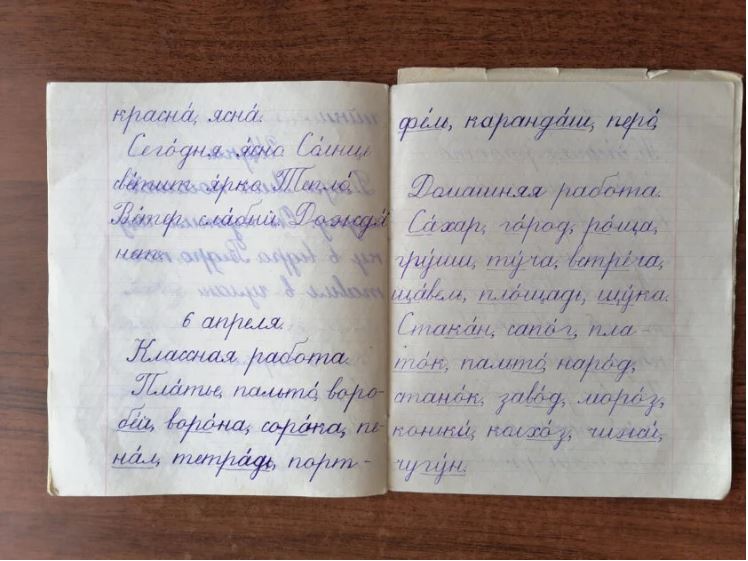 красна́, ясна́.
Сего́дня я́сно Со́лнце
све́тит я́рко. Тепло́.
Ве́тер сла́бый. Дождя́
нет.
6 апреля.
Классная работа.
Пла́тье, пальто́, воро-
бе́й, воро́на, соро́ка, пе-
на́л, тетра́дь, порт-
фе́ль, каранда́ш, перо́,
Домашняя работа.
Са́хар, го́род, ро́ща,
гру́ши, ту́ча, встре́ча,
щаве́ль, пло́щадь, щу́ка.
Стака́н, сапо́г, пла-
то́к, пальто́, наро́д,
стано́к, заво́д, моро́з,
коньки́, колхо́з,
чугу́н.